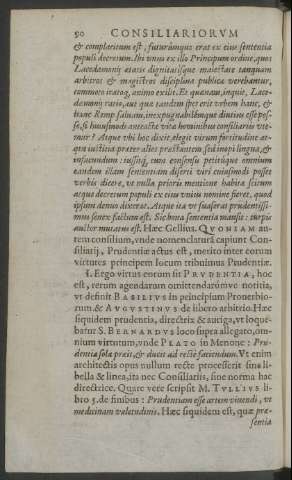 90 CONSILIARIORVM
& complacitum est, futurúmque eras ex eius sententia
populi decretum. Ibi vnus ex illo Principum ordine, quos
Lacedæmonij ætatis dignitatisque maiestate tanquam
arbitros & magistros disciplinæ publicæ verebantur,
commoto iratoq; animo exilit. Et quænam, inquit, Lace-
dæmonij ratio, aut quæ tandem spes erit vrbem hanc, &
hanc Remp. saluam, inexpugnabilémque diutius esse pos-
se, si huiusmodi anteactæ vitæ hominibus consiliariis vte-
mur? Atque vbi hoc dixit, elegit virum fortitudine at-
que iustitia præter alios præstantem, sed inopi lingua, &
infacundum: iussitq; cum consensu petitúque omnium
eandem illam sententiam diserti viri cuiusmodi posset
verbis dicere, vt nulla prioris mentione habita scitum
atque decretum populi ex eius vnius nomine fieret, quod
ipsum denuo dixerat. Atque ita vt suaserat prudentissi-
mus senex factum est. Sic bona sententia mansit: turpis
auctor mutatus est. Hæc Gellius. QVONIAM au-
tem consilium, vnde nomenclaturã capiunt Con-
siliarij, Prudentiæ actus est, merito inter eorum
virtutes principem locum tribuimus Prudentiæ.
1. Ergo virtus eorum sit PRVDENTIA, hoc
est, rerum agendarum omittendarúmve notitia,
vt definit BASILIVS in principium Prouerbio-
rum, & AVGVSTINVS de libero arbitrio. Hæc
siquidem prudentia, directrix & auriga, vt loque-
batur S. BERNARDVS loco supra allegato, óm-
nium virtutum, vnde PLATO in Menone: Pru-
dentia sola præit, & ducit ad recte faciendum. Vt enim
architectis opus nullum recte processerit sine li-
bella & linea, ita nec Consiliariis, sine norma hac
directrice. Quare vere scripsit M. TVLLIVS li-
bro 5. de finibus: Prudentiam esse artem viuendi, vt
medicinam valetudinis. Hæc siquidem est, quæ præ-
sentia